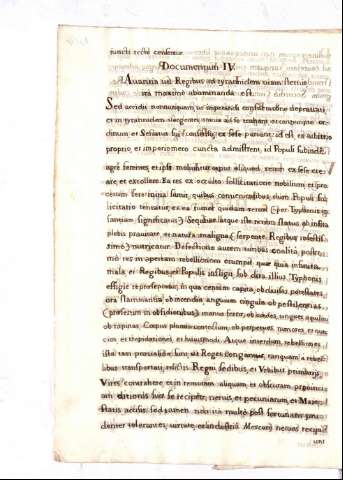 iuncti recte censentur
Documentum IV.
Avaritia uti Regibus ad tyrannidem viam sternit
ita maxime abominanda est.
Sed accidit nonnunquam, ut imperiosis consiliis
in tyrannidem vergentes, omnia ad se trahant,
dinum et Senatus consulta, ex sese pariant: id est, ex arbitrio
proprio, et imperio nemo cuncta admistrent, id Populi subinde
ægre ferentes, et ipsi aliquid rerum ex sese cre-
are, et excellere. Ea res ex occulto sollicitatione nobilium, et pro-
cerum semina sumit, quibus conventionibus, cum Populi
licitatio tentatur, ex ea tumet quædam rerum (per Typhonis
significatur) Sequitur atque iste rerum status, ob
plebis pravitate, et natura maligna (serpente, Regibus infestis-
simo) nutricatur. Defectionis autem viribus coalitis, postre-
mo res in apertam rebellionem erumpit quæ quia infinita
mala, et Regibus, et Populis infligit, sub dira illius Typhonis
effigie repræsentatur, in qua centum capita, ob divisas potestates,
ora flammantia ob incendia, anguium cingula ob pestilentias
(præsertim in obsidionibus) manus ferreæ, ob cædes, ungues aquilini
ob rapinas, Corpus plumis contectum, ob perpetuos rumores, et nun-
cios, et trepidationes, et huiusmodi. Atque interdum rebelliones
istæ tam prævalidæ sunt, ut Reges cogantur, tanquam à rebel-
libus transportati, relictis Regni sedibus, et Urbibus primariis
Vires contrahere, et in remotam aliquam, et obscuram provinciam
ditionis suæ se recipere, nervis, et pecuniarum, et Maie-
statis accisis: sed tamen non ita multo post fortunam pru-
denter tolerantes, virtute, et industria Mercurij nervos recipi
unt